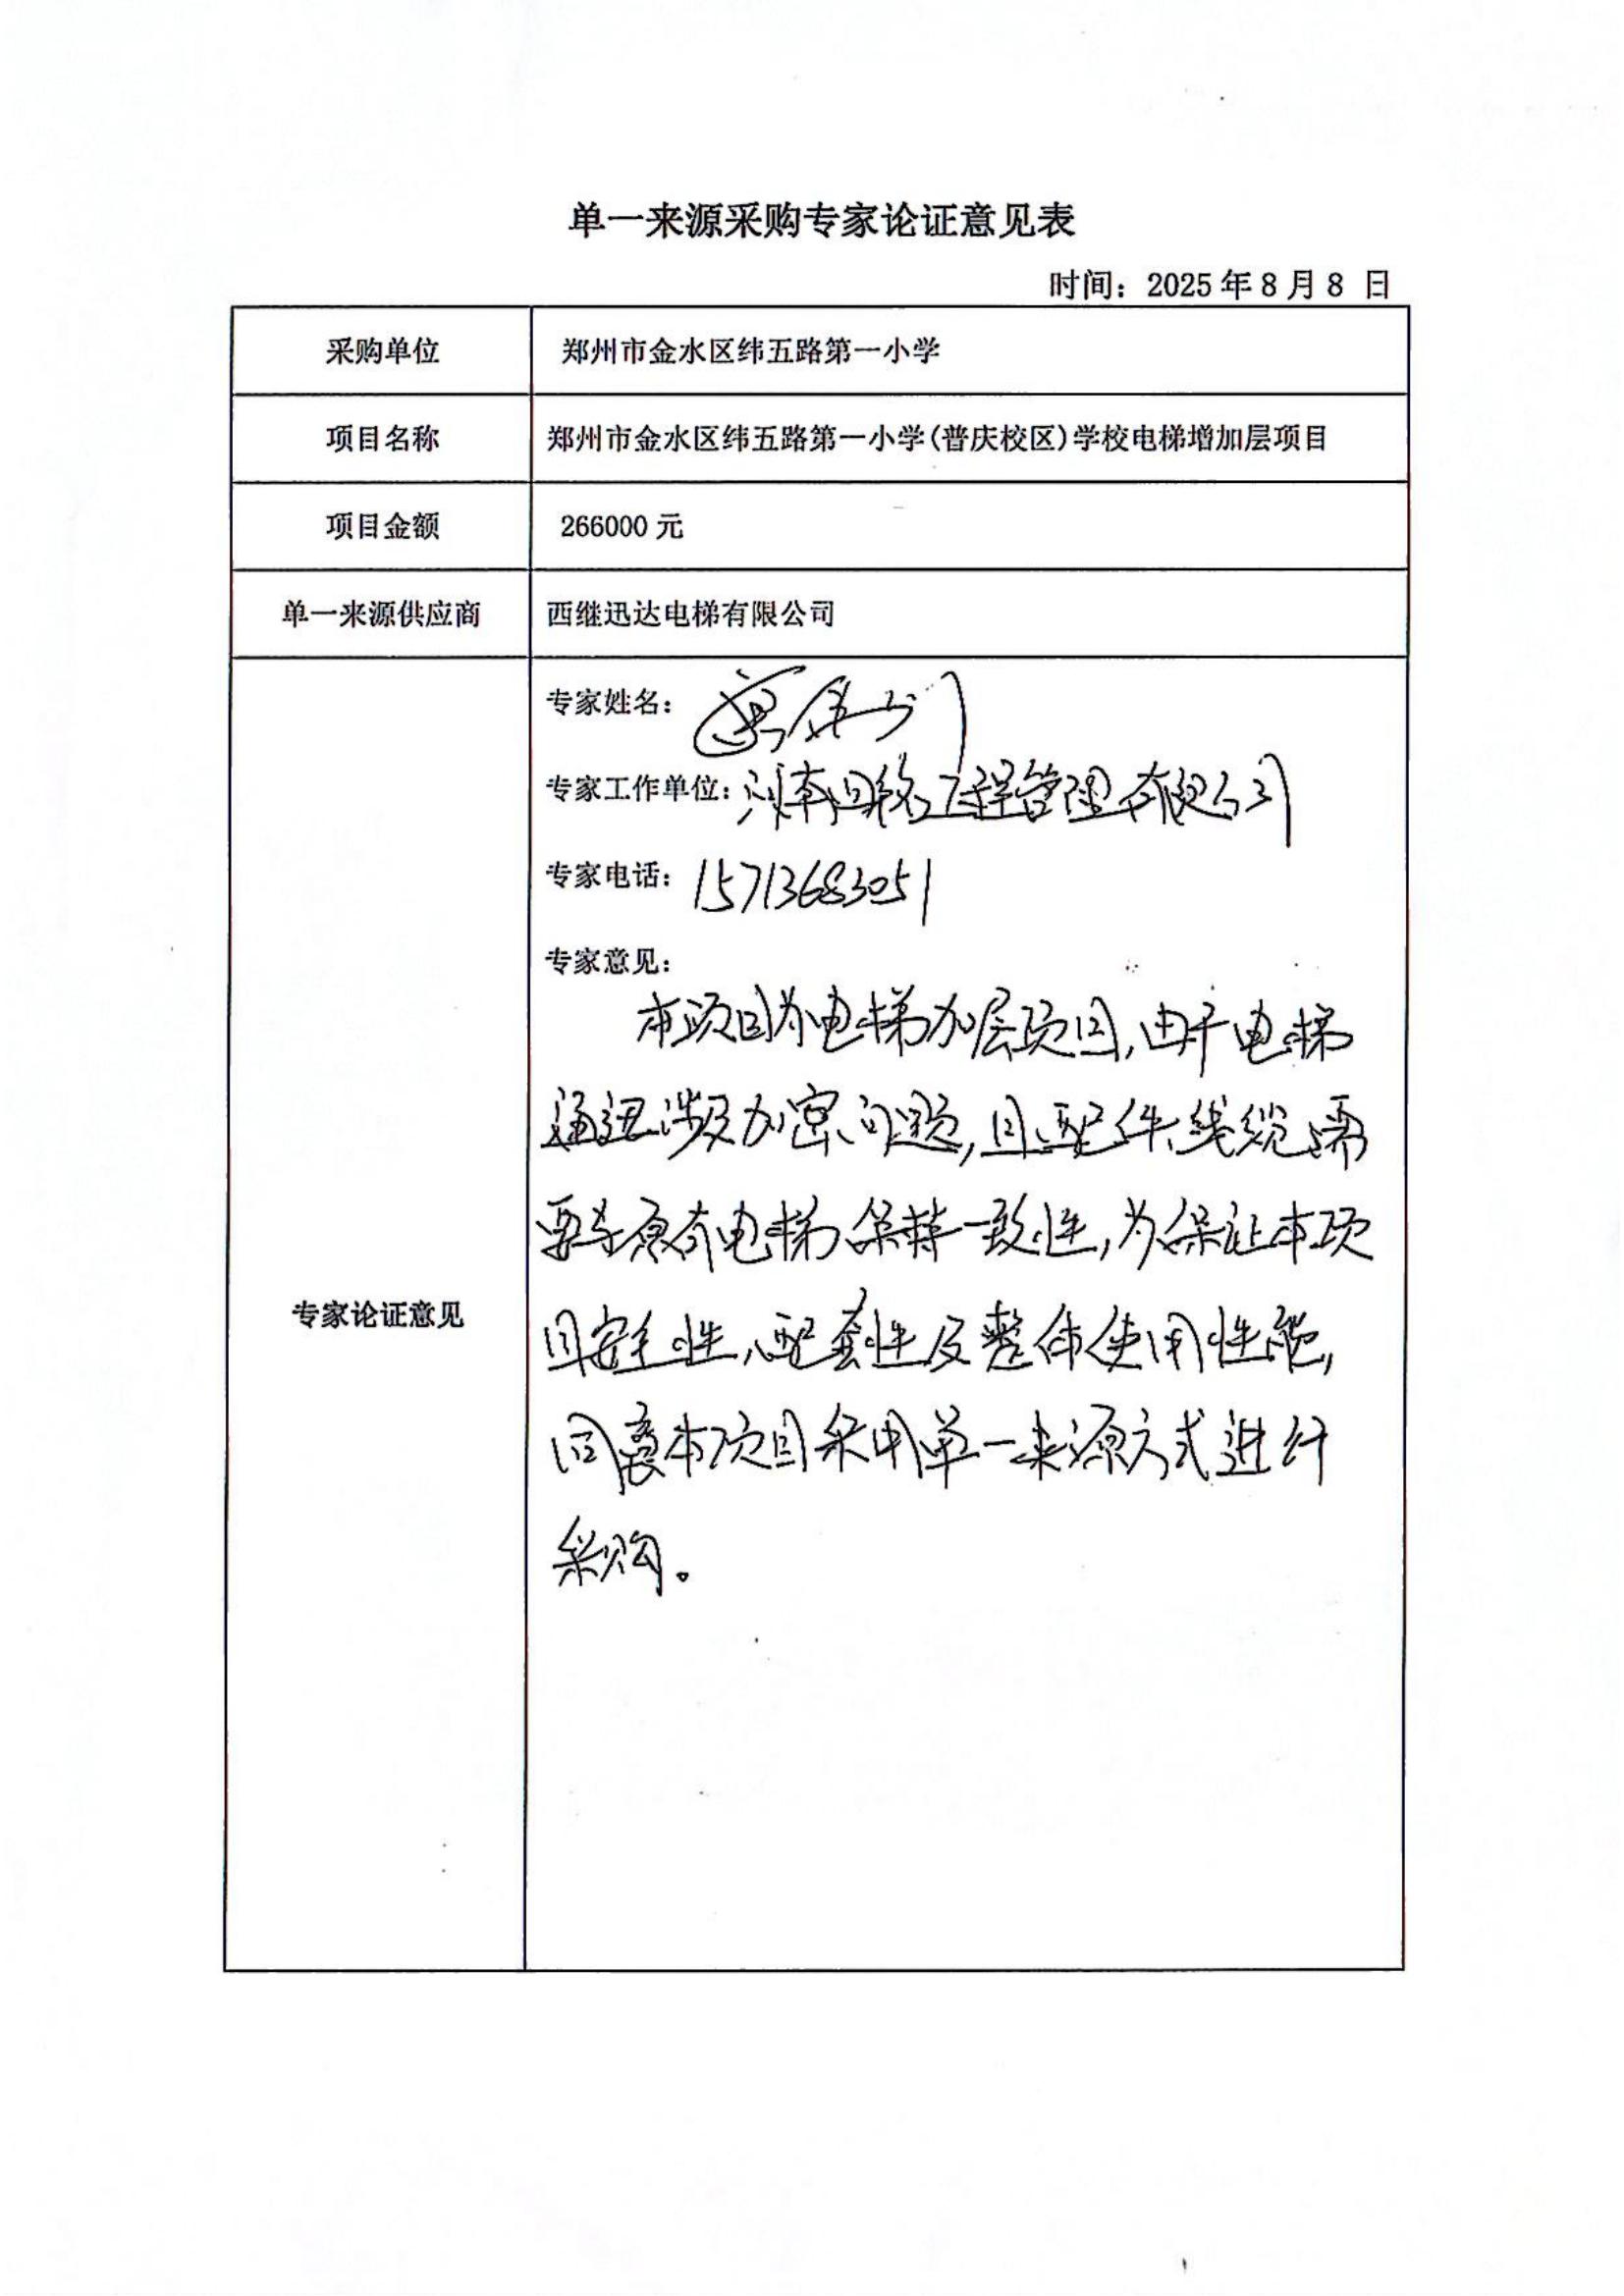 单一来源采购专家论证意见表
时间：2025年8月8 日
采购单位 郑州市金水区纬五路第一小学
项目名称 郑州市金水区纬五路第一小学(普庆校区)学校电梯增加层项目
项目金额 266000元
单一来源供应商 西继迅达电梯有限公司
专家论证意见
专家姓名：
专家工作单位：河南 工程管理有限公司
专家电话：15713683051
专家意见：
本项目为电梯加层项目,由于电梯
通迅涉及加密问题,且配件、线缆需
要与原有电梯保持一致性,为保证本项
目安全性、配套性及整体使用性能,
同意本项目采用单一来源方式进行
采购。